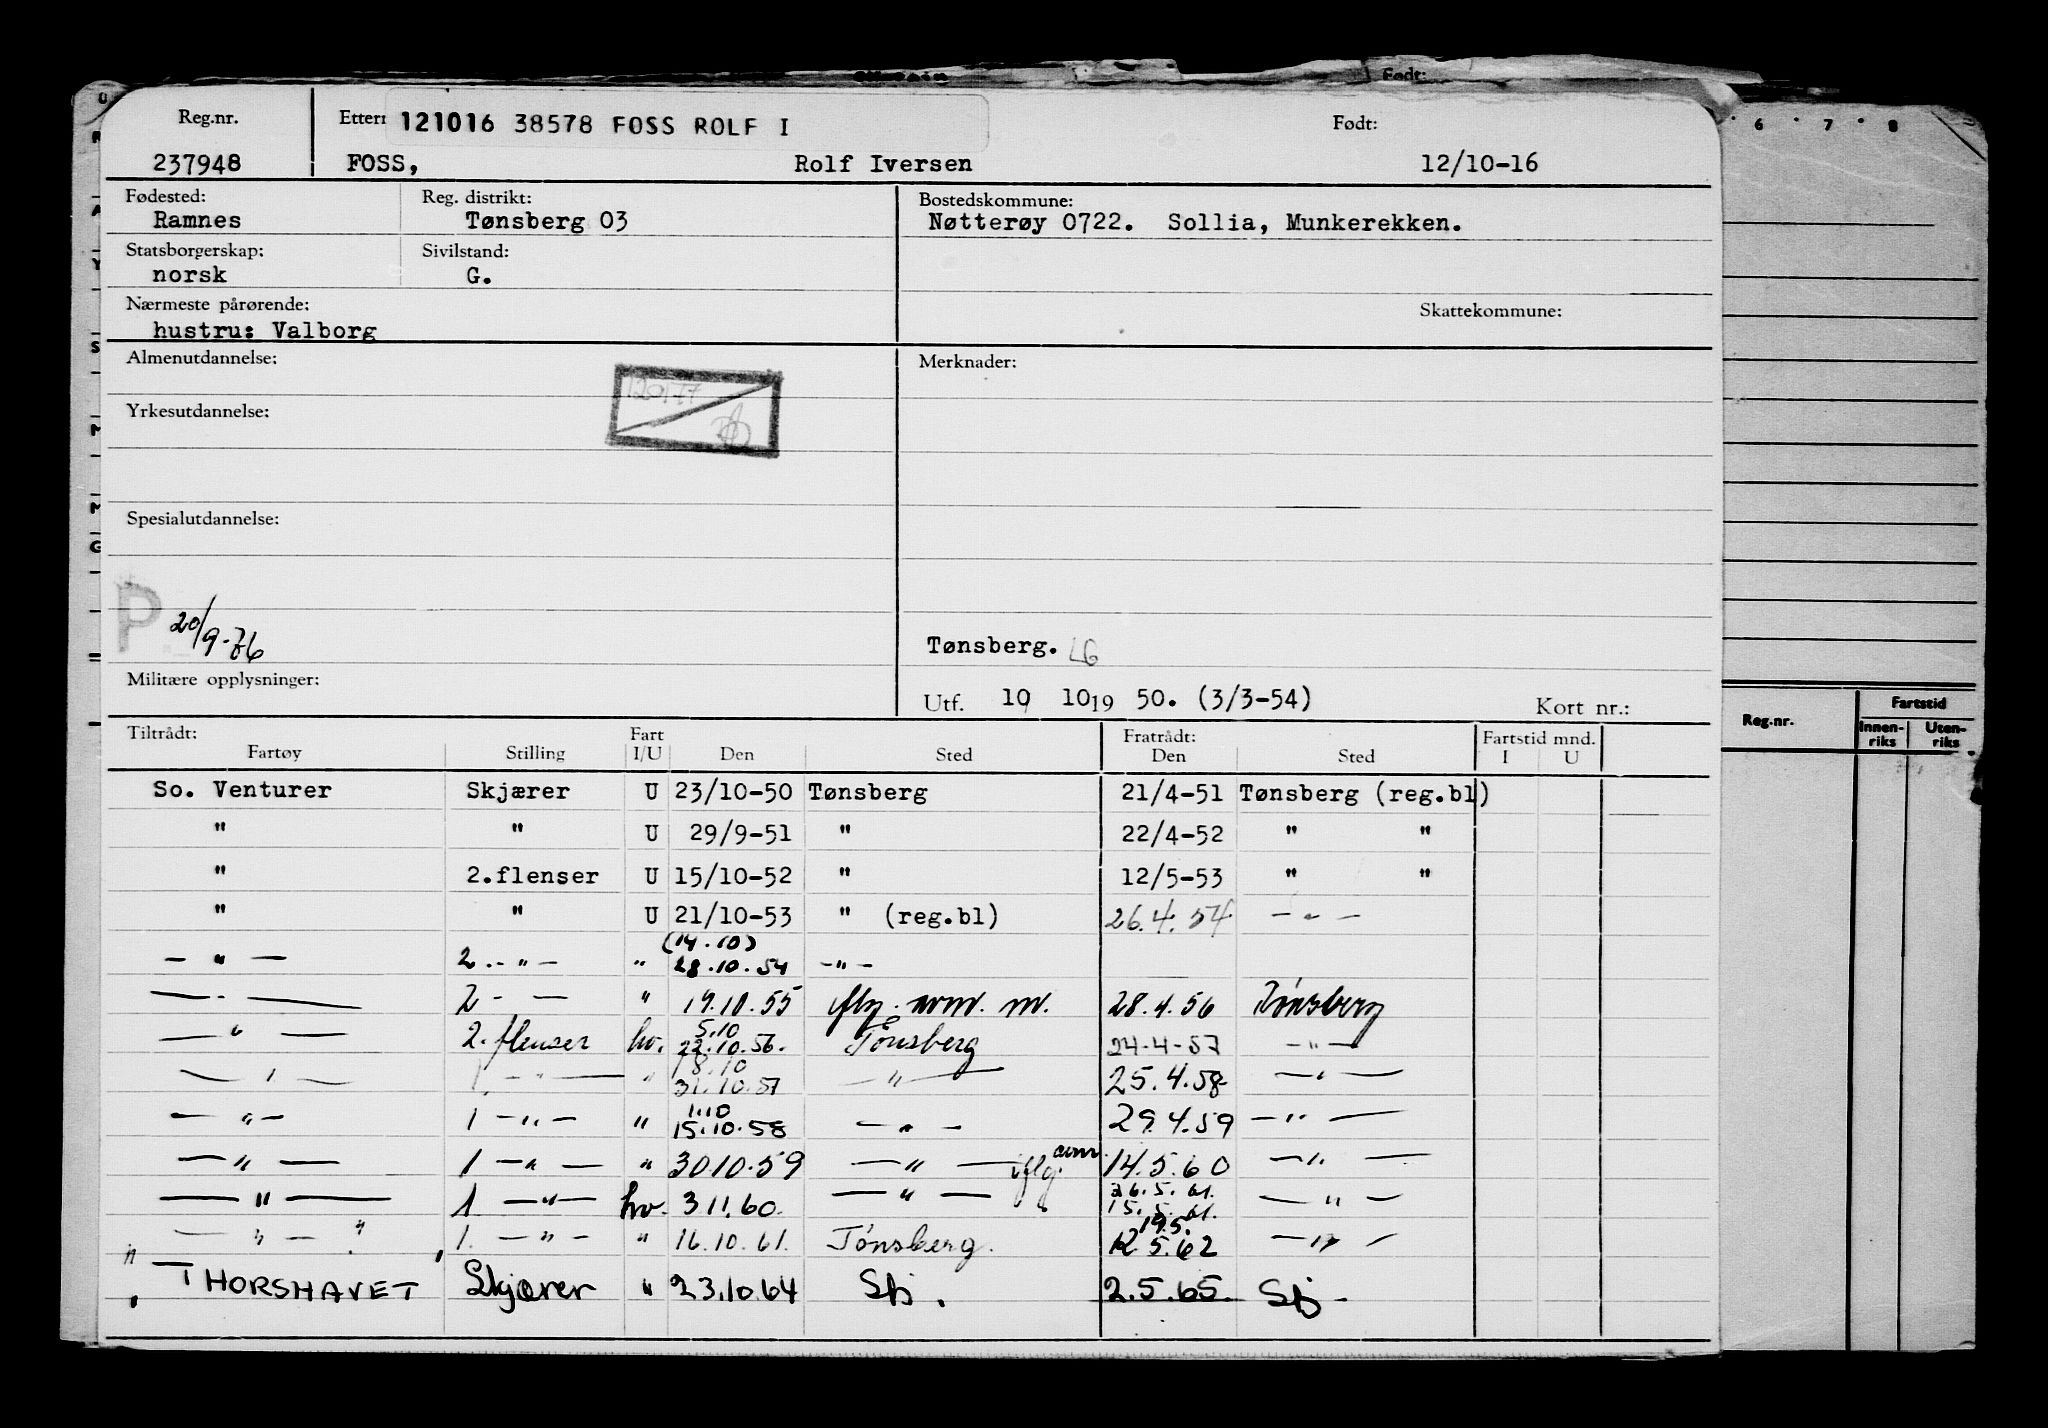 Født:
Reg.nr. Ettern 121016 38578 FOSS ROLF I Født:
237948 FOSS, Rolf Iversen 12/10-16
Fødested: Reg. distrikt: Bostedskommune:
Ramnes Tønsberg 03 Nøtterøy 0722. Sollia, Munkerekken.
Statsborgerskap: Sivilstand:
norsk G.
Nærmeste pårørende: Skattekommune:
hustru: Valborg
Almenutdannelse: Merknader:
Yrkesutdannelse:
Spesialutdannelse:
P 20/9-76
Tønsberg. LG
Militære opplysninger:
Utf. 10 10 19 50. (3/3-54) Kort nr.:
Tiltrådt: Fart Fratrådt: Fartstid mnd.
Fartøy Stilling I/U Den Sted Den Sted I U
So. Venturer Skjærer U 23/10-50 Tønsberg 21/4-51 Tønsberg (reg.bl)
" " U 29/9-51 " 22/4-52 " "
" 2.flenser U 15/10-52 " 12/5-53 " "
" " U 21/10-53 " (reg.bl) 26.4.54 — " —
(14.10)
— " — 2.-"- " 28.10.54 -"-
— " — 2 - — " 19.10.55 28.4.56 Tønsberg
5.10
— " — 2. flenser hv. 22.10.56. Tønsberg 24-4-57 -"-
18.10
— " — 1 -"- " 31.10.57 — " — 25.4.58 — " —
1.10
— " — 1 -"- " 15.10.58 — " — 29.4.59 — " —
— " — 1 -"- " 30 10.59 — " — 14.5.60 — " —
26.5.61.
— " — 1 -"- hv. 3 11.60. — " — 15.5.61. — " —
19.5.
— " — " 1. -"- " 16.10.61. Tønsberg. 12.5.62 — " —
" THORSHAVET Skjærer " 23.10.64 Sbj. 2.5.65. Sbj-
6 7 8
Reg.nr. Fartstid
Innen-riks Uten-riks